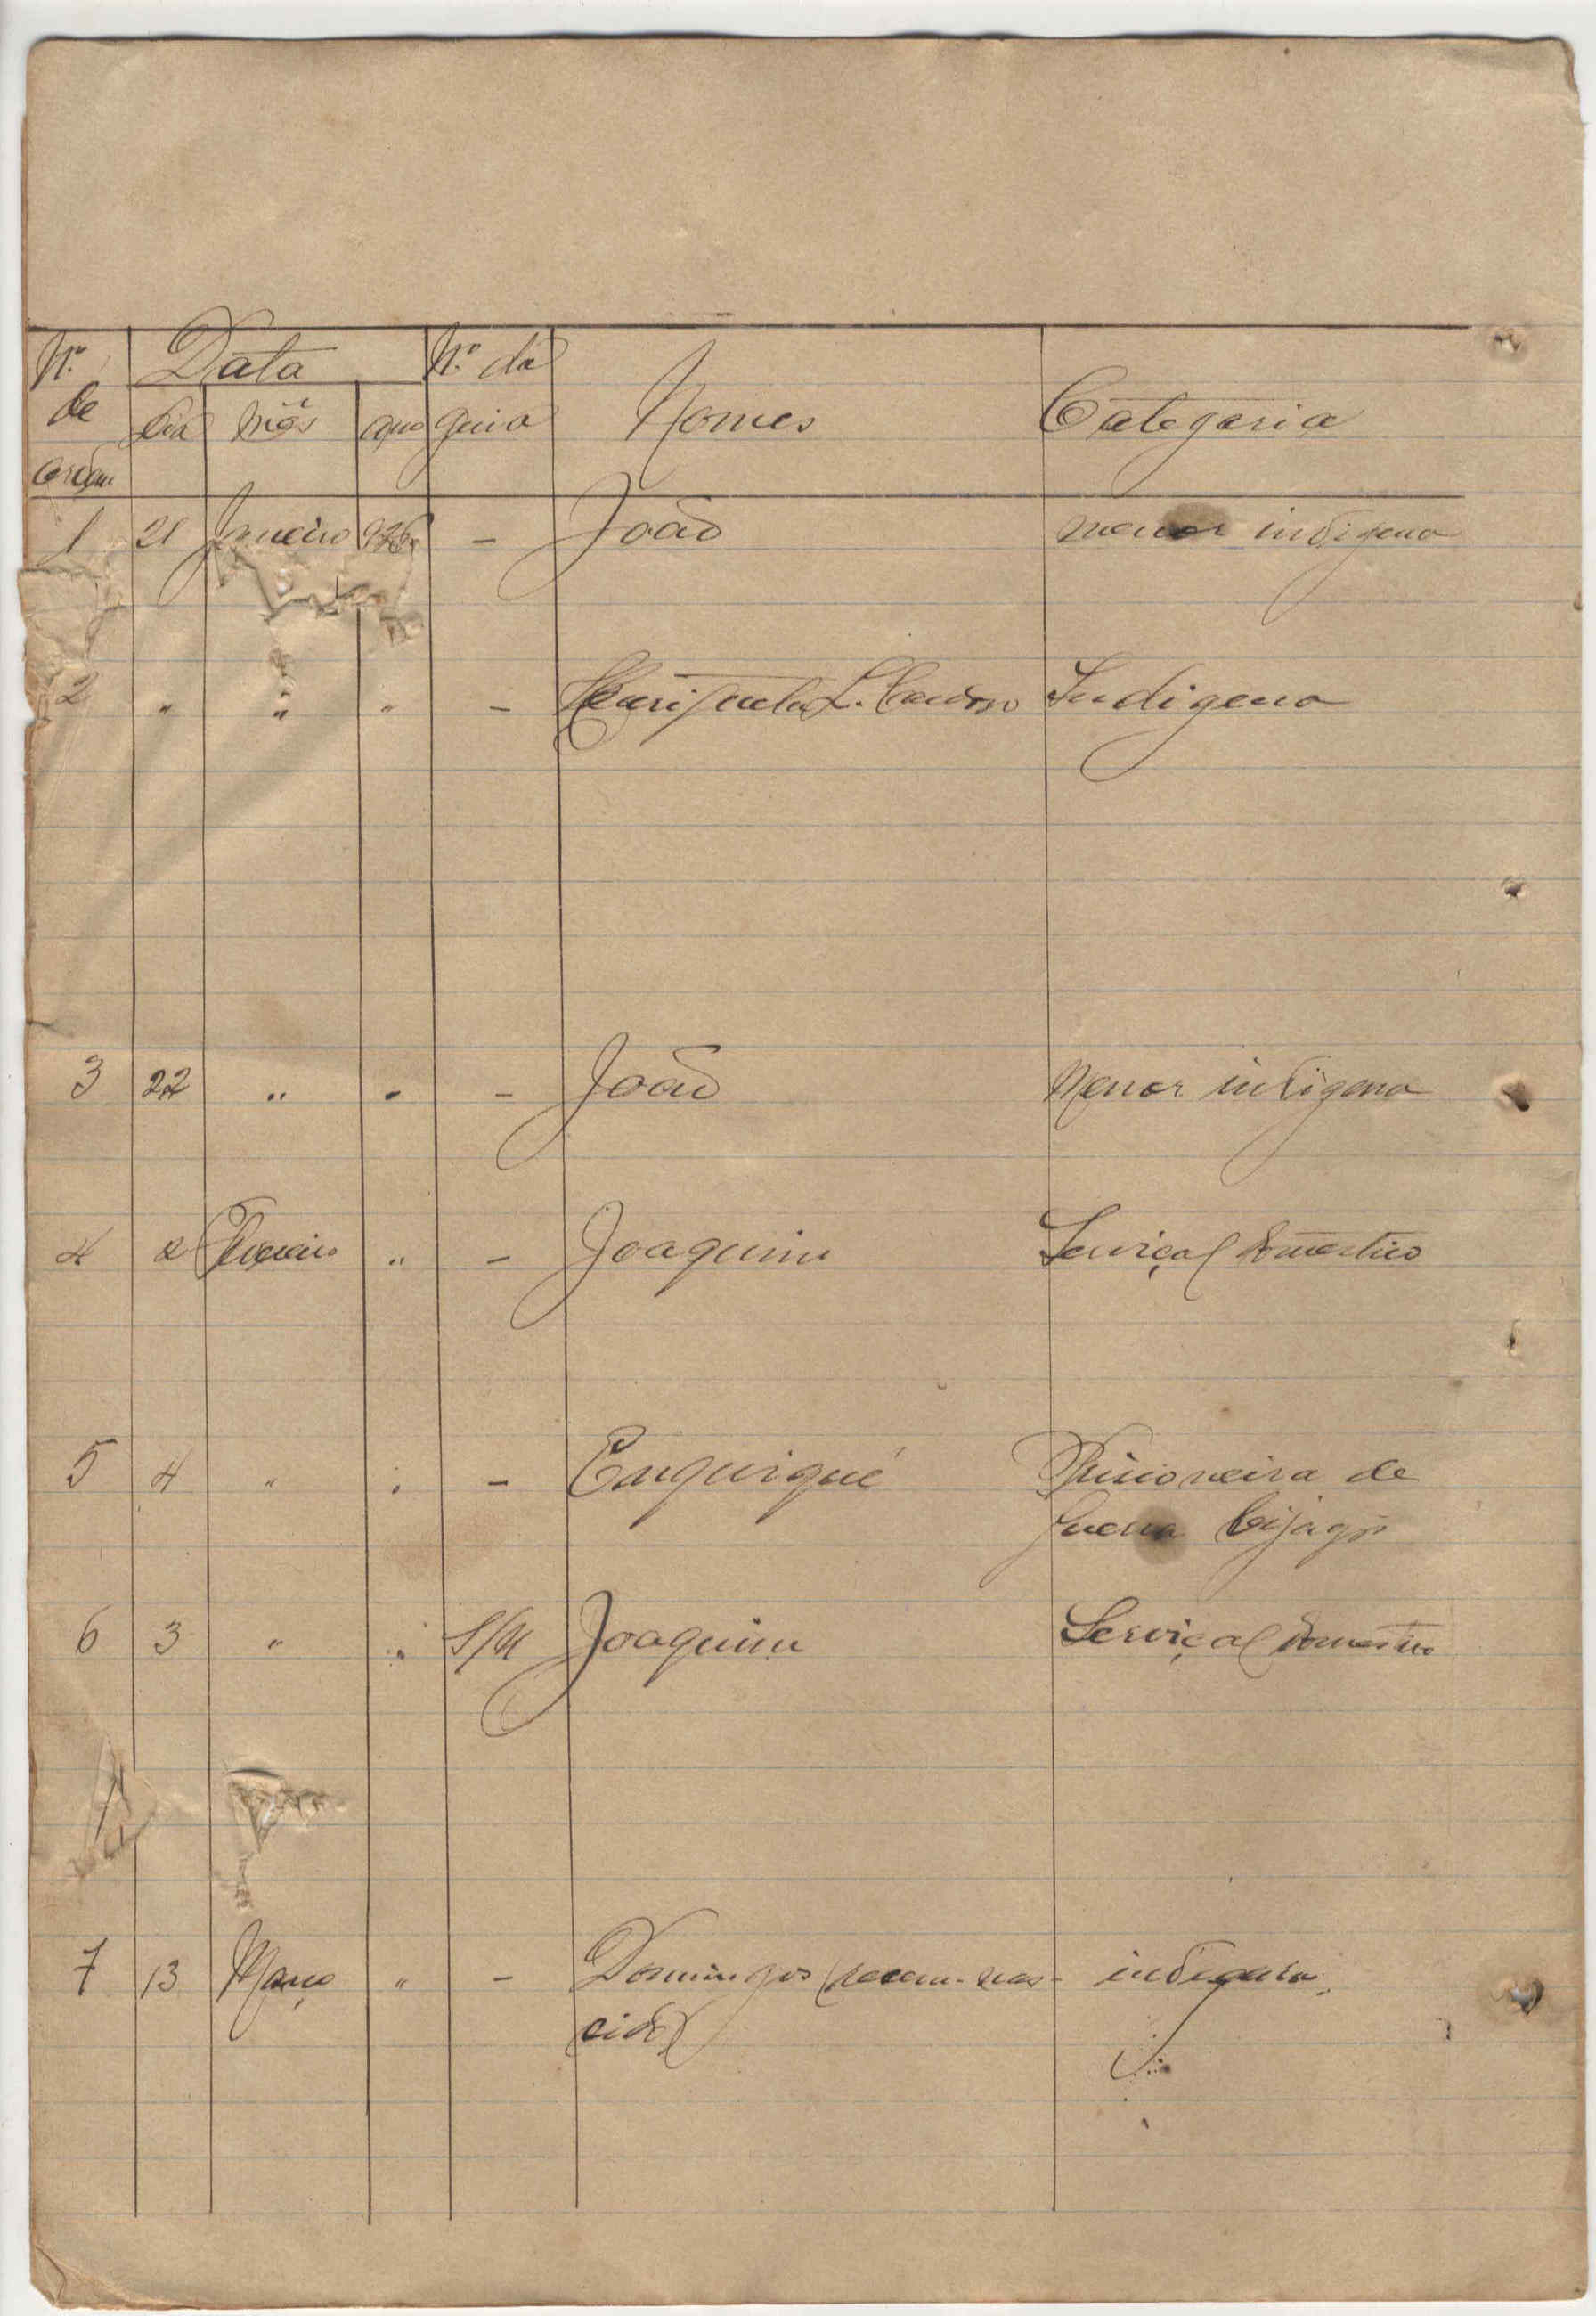 Nº Data Nº da
de dia mês ano guia Nomes Categoria
ordem
1 21 Janeiro 926 - João menor indigena
2 " " " - Henriqueta L. Cardoso Indigena
3 22 " " - João Menor indigena
4 2 Fevereiro " - Joaquim Serviçal domestico
5 4 " " - Enquiqué Prisioneira de
guerra bijagós
6 3 " " S/N Joaquim Serviçal domestico
7 13 Março " - Domingos (recem-nas- indigena
cido)